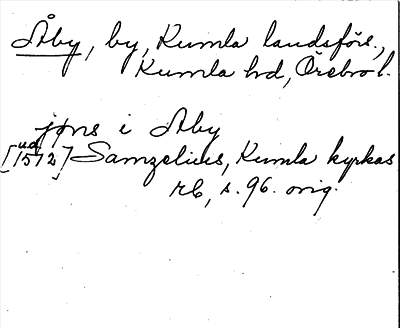 Åby, by, Kumla landsförs.,
Kumla hd, Örebro l.
jøns i Aby
[ua 1572] Samzelius, Kumla kyrkas
rb, s. 96. orig.